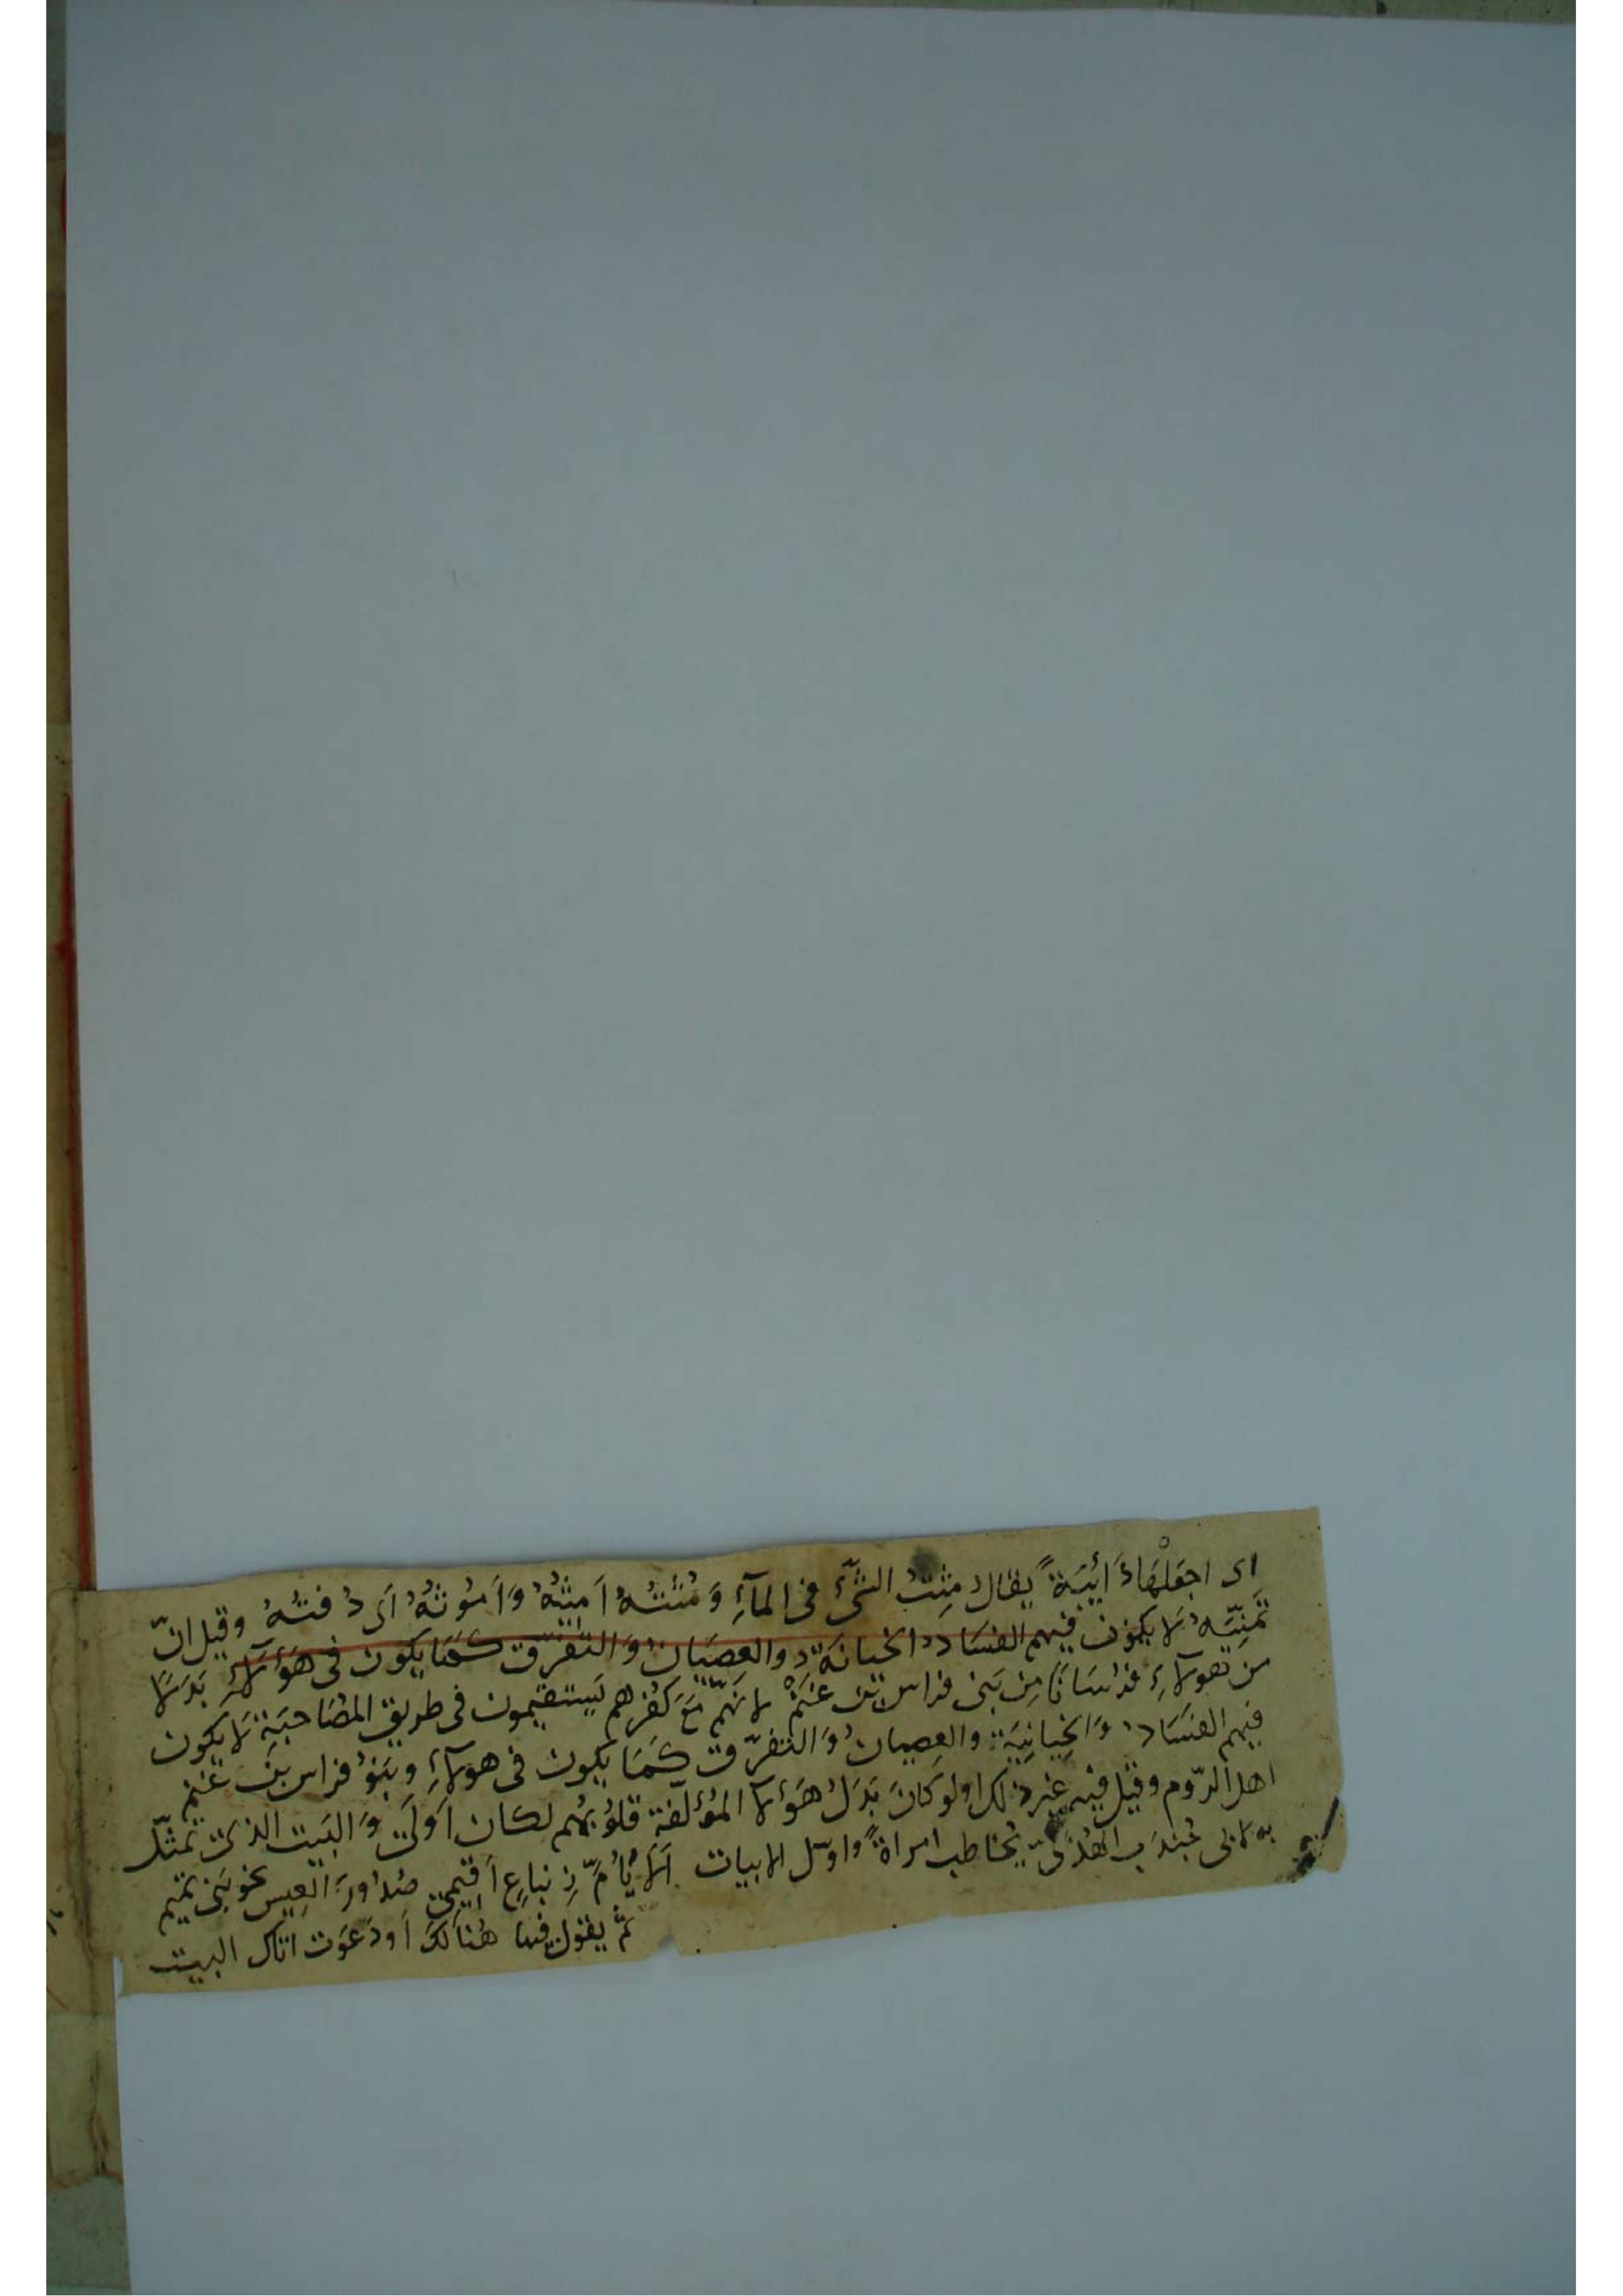 اى اجعَلْهَا دَائِبَةً يقالُ مِثتُ الشّىءَ فى المآءِ وَمُثتُهُ اَمِيثُهُ وَاَمُوثُهُ اَى دُفتُهُ وقيل انّ
تمنّيَهُ لا يكون فيهم الفسَادُ الخيانَةُ والعِصيَانُ وَالتفرّق كمَا يكون فى هَؤلآءِ بَدَلًا
من هولآءِ فرسَانًا مِن بَنى فراس بن غنمْ لانّهم مَعَ كفرهم يَستقيمون فى طريق المُصَاحبَةِ لا يكون
فيهم الفسَادُ وَالخِيانَةُ والعِصيانُ وَالتفرّق كمَا يكون فى هولآءِ وبَنوُ فراس بن غنمٍ
اهل الرّوم وقيل فيه غير ذلك اولو كانَ بَدَلُ هَؤلآ المُؤلّفة قلوُبهُم لكان اَولَى وَالبَيت الذى تمثّل
به لابى جُندَب الهُذلىّ يُخاطب امراةً واوّل الابيات اَلَا يا اُمّ زِنباعٍ اَقِيمى صُدُورَ العِيس نحو بَنى تميم
ثمّ يقول فيها هُنالكَ اَودَعَوت اتاك البيت